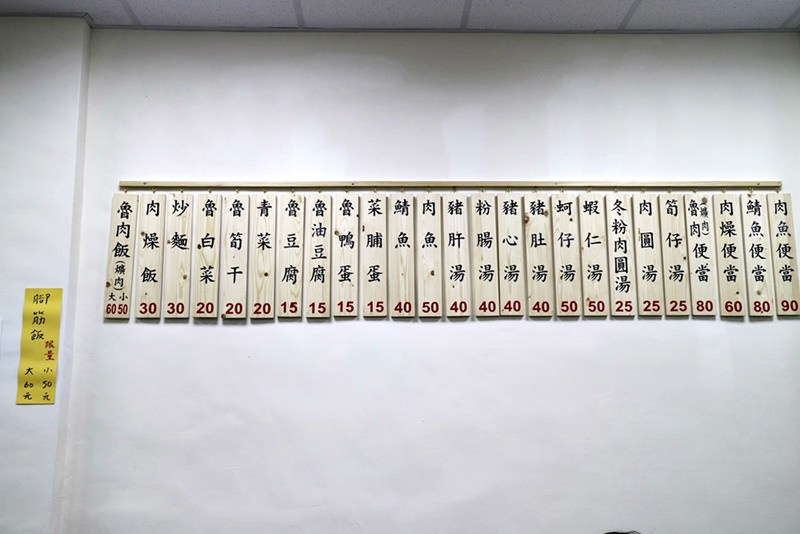 腳筋飯
限量
大60元
小50元
魯肉飯(爌肉)大60小50
肉燥飯30
炒麵30
魯白菜20
魯筍干20
青菜20
魯豆腐15
魯油豆腐15
魯鴨蛋15
菜脯蛋15
鯖魚40
肉魚50
豬肝湯40
粉腸湯40
豬心湯40
豬肚湯40
蚵仔湯50
蝦仁湯50
冬粉肉圓湯25
肉圓湯25
筍仔湯25
魯肉(爌肉)便當80
肉燥便當60
鯖魚便當80
肉魚便當90